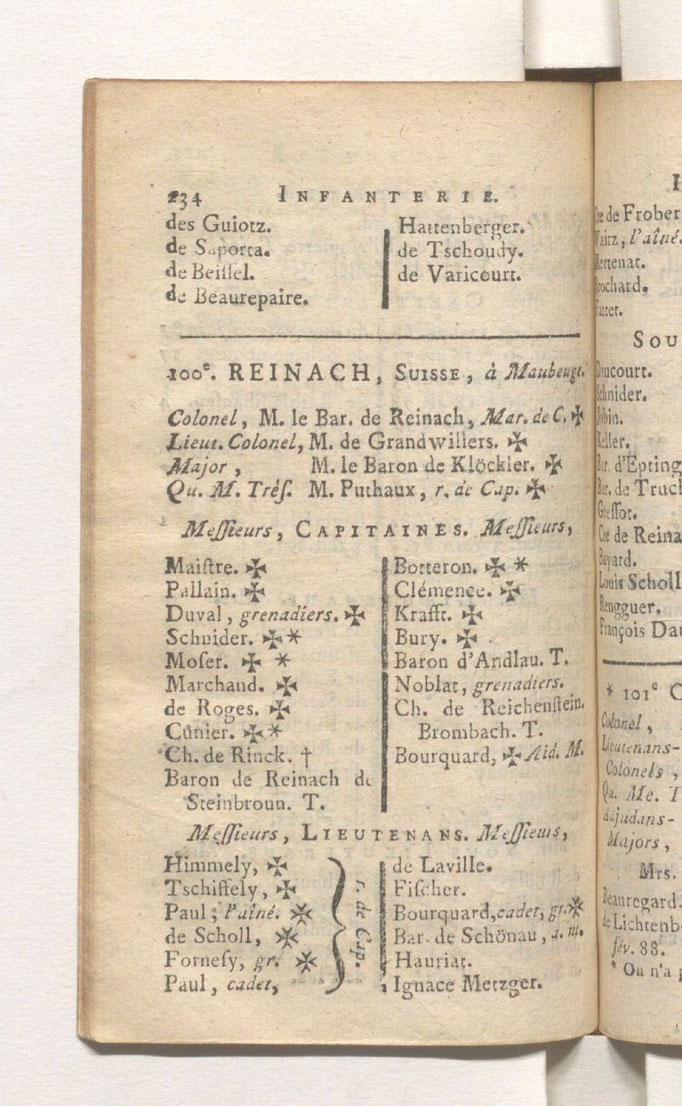 234 INFANTERIE.
des Guiotz.
de Saporta.
de Beissel.
de Beaurepaire.
Hattenberger.
de Tschoudy.
de Varicourt.
100e. REINACH, SUISSE, à Maubeuge.
Colonel, M. le Bar. de Reinach, Mar. de C. ✠
Lieut. Colonel, M. de Grandwillers. ✠
Major, M. le Baron de Klöckler. ✠
Qu. M. Trés. M. Puthaux, r. de Cap. ✠
Messieurs, CAPITAINES. Messieurs,
Maistre. ✠
Pallain. ✠
Duval, grenadiers. ✠
Schnider. ✠ *
Moser. ✠ *
Marchand. ✠
de Roges. ✠
Cunier. ✠ *
Ch. de Rinck. †
Baron de Reinach de
Steinbroun. T.
Botteron. ✠ *
Clémence. ✠
Krafft. ✠
Bury. ✠
Baron d'Andlau. T.
Noblat, grenadiers.
Ch. de Reichenstein.
Brombach. T.
Bourquard, ✠ Aid. M.
Messieurs, LIEUTENANS. Messieurs,
Himmely, ✠
Tschiffely, ✠
Paul, l'aîné. ✠
de Scholl, ✠
Fornesy, gr. ✠
Paul, cadet,
r. de Cap.
de Laville.
Fischer.
Bourquard, cadet, gr. ✠
Bar. de Schönau, a. m.
Hauriat.
Ignace Metzger.
de Frober
l'aîné.
SOU
Schnider.
Keller.
Bar. d'Epting
Bar. de Truc
Gressot.
Cte de Reina
Bayard.
Louis Scholl
Rengguer.
François Dau
* 101e C
Colonel,
Lieutenans-
Colonels,
Qu. Me. T
Adjudans-
Majors,
Mrs.
Beauregard.
de Lichtenb
fév. 88.
* On n'a p